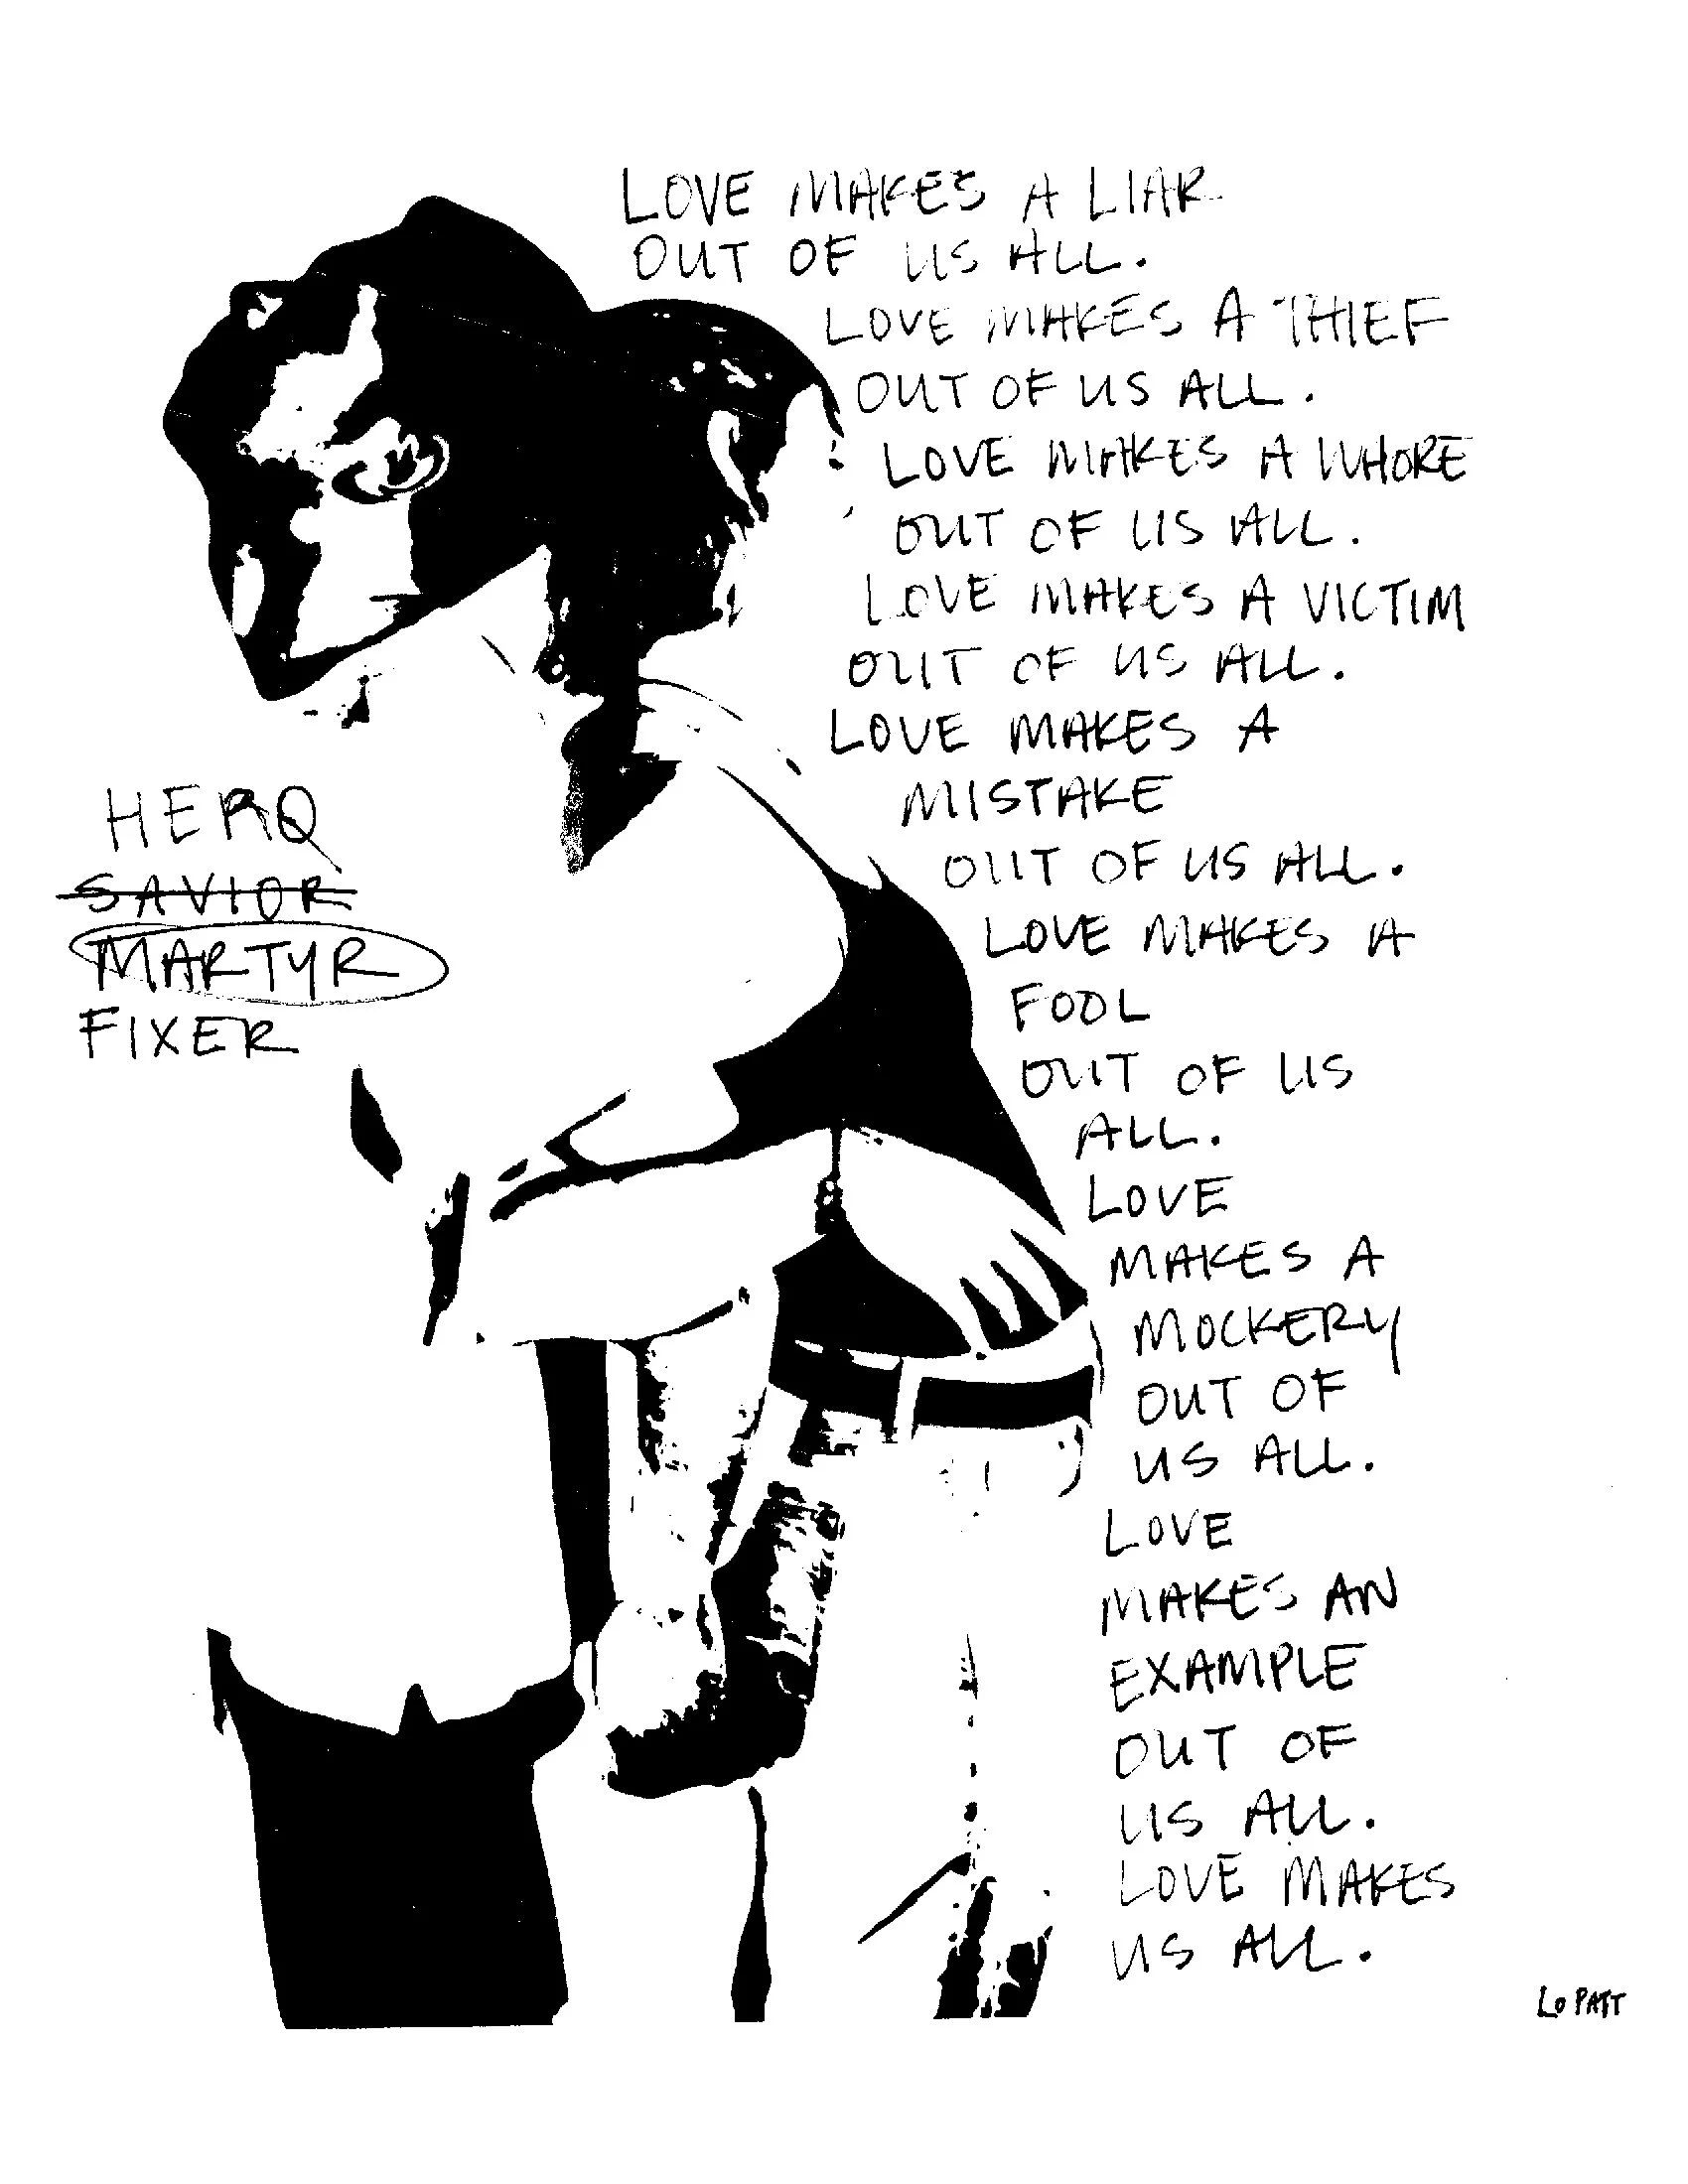 LOVE MAKES A LIAR
OUT OF US ALL.
LOVE MAKES A THIEF
OUT OF US ALL.
LOVE MAKES A WHORE
OUT OF US ALL.
LOVE MAKES A VICTIM
OUT OF US ALL.
LOVE MAKES A
MISTAKE
OUT OF US ALL.
LOVE MAKES A
FOOL
OUT OF US
ALL.
LOVE
MAKES A
MOCKERY
OUT OF
US ALL.
LOVE
MAKES AN
EXAMPLE
OUT OF
US ALL.
LOVE MAKES
US ALL.
HERO
SAVIOR
MARTYR
FIXER
LO PATT